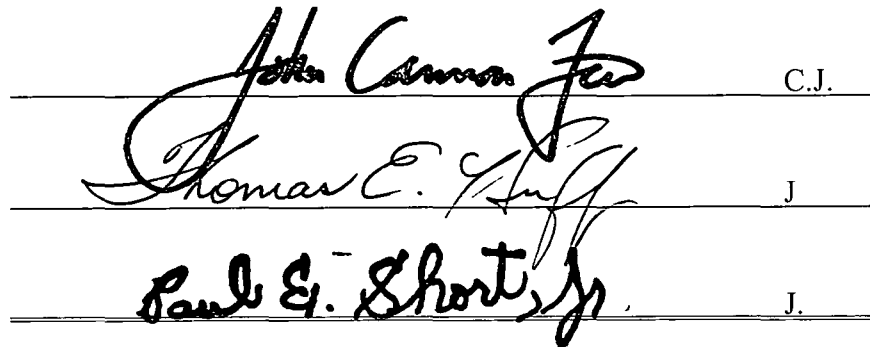 John Cannon Few C.J.
Thomas E. Huff J
Paul E. Short, Jr. J.